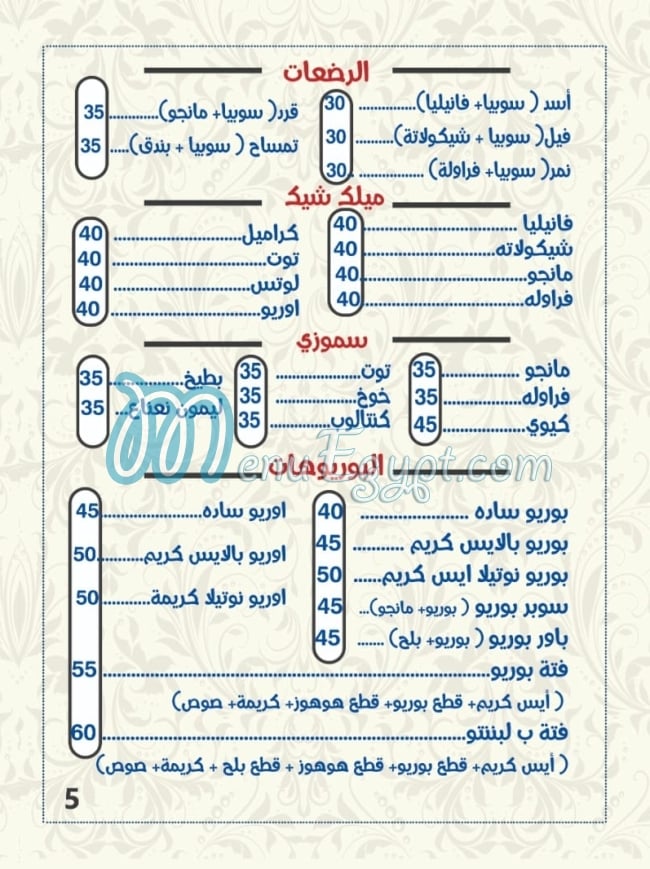 الرضعات
أسد ( سوبيا+ فانيليا)............... 30
فيل( سوبيا + شيكولاتة).......... 30
نمر( سوبيا+ فراولة) ................ 30
قرد( سوبيا+ مانجو)............. 35
تمساح ( سوبيا + بندق)..... 35
ميلك شيك
فانيليا ............................ 40
شيكولاته........................ 40
مانجو............................. 40
فراوله............................. 40
كراميل........................ 40
توت............................. 40
لوتس........................... 40
اوريو............................ 40
سموزي
مانجو ................... 35
فراوله................... 35
كيوي.................... 45
توت ................. 35
خوخ................. 35
كنتالوب............. 35
بطيخ................ 35
ليمون نعناع... 35
البوريوهات
بوريو ساده ...................... 40
بوريو بالايس كريم ........... 45
بوريو نوتيلا ايس كريم...... 50
سوبر بوريو ( بوريو+ مانجو)... 45
باور بوريو ( بوريو+ بلح) ....... 45
اوريو ساده................... 45
اوريو بالايس كريم........... 50
اوريو نوتيلا كريمة............ 50
فتة بوريو.................................................. 55
( أيس كريم+ قطع بوريو+ قطع هوهوز+ كريمة+ صوص)
فتة ب لبننتو............................................... 60
( أيس كريم+ قطع بوريو+ قطع هوهوز + قطع بلح + كريمة+ صوص)
MenuEgypt.com
5